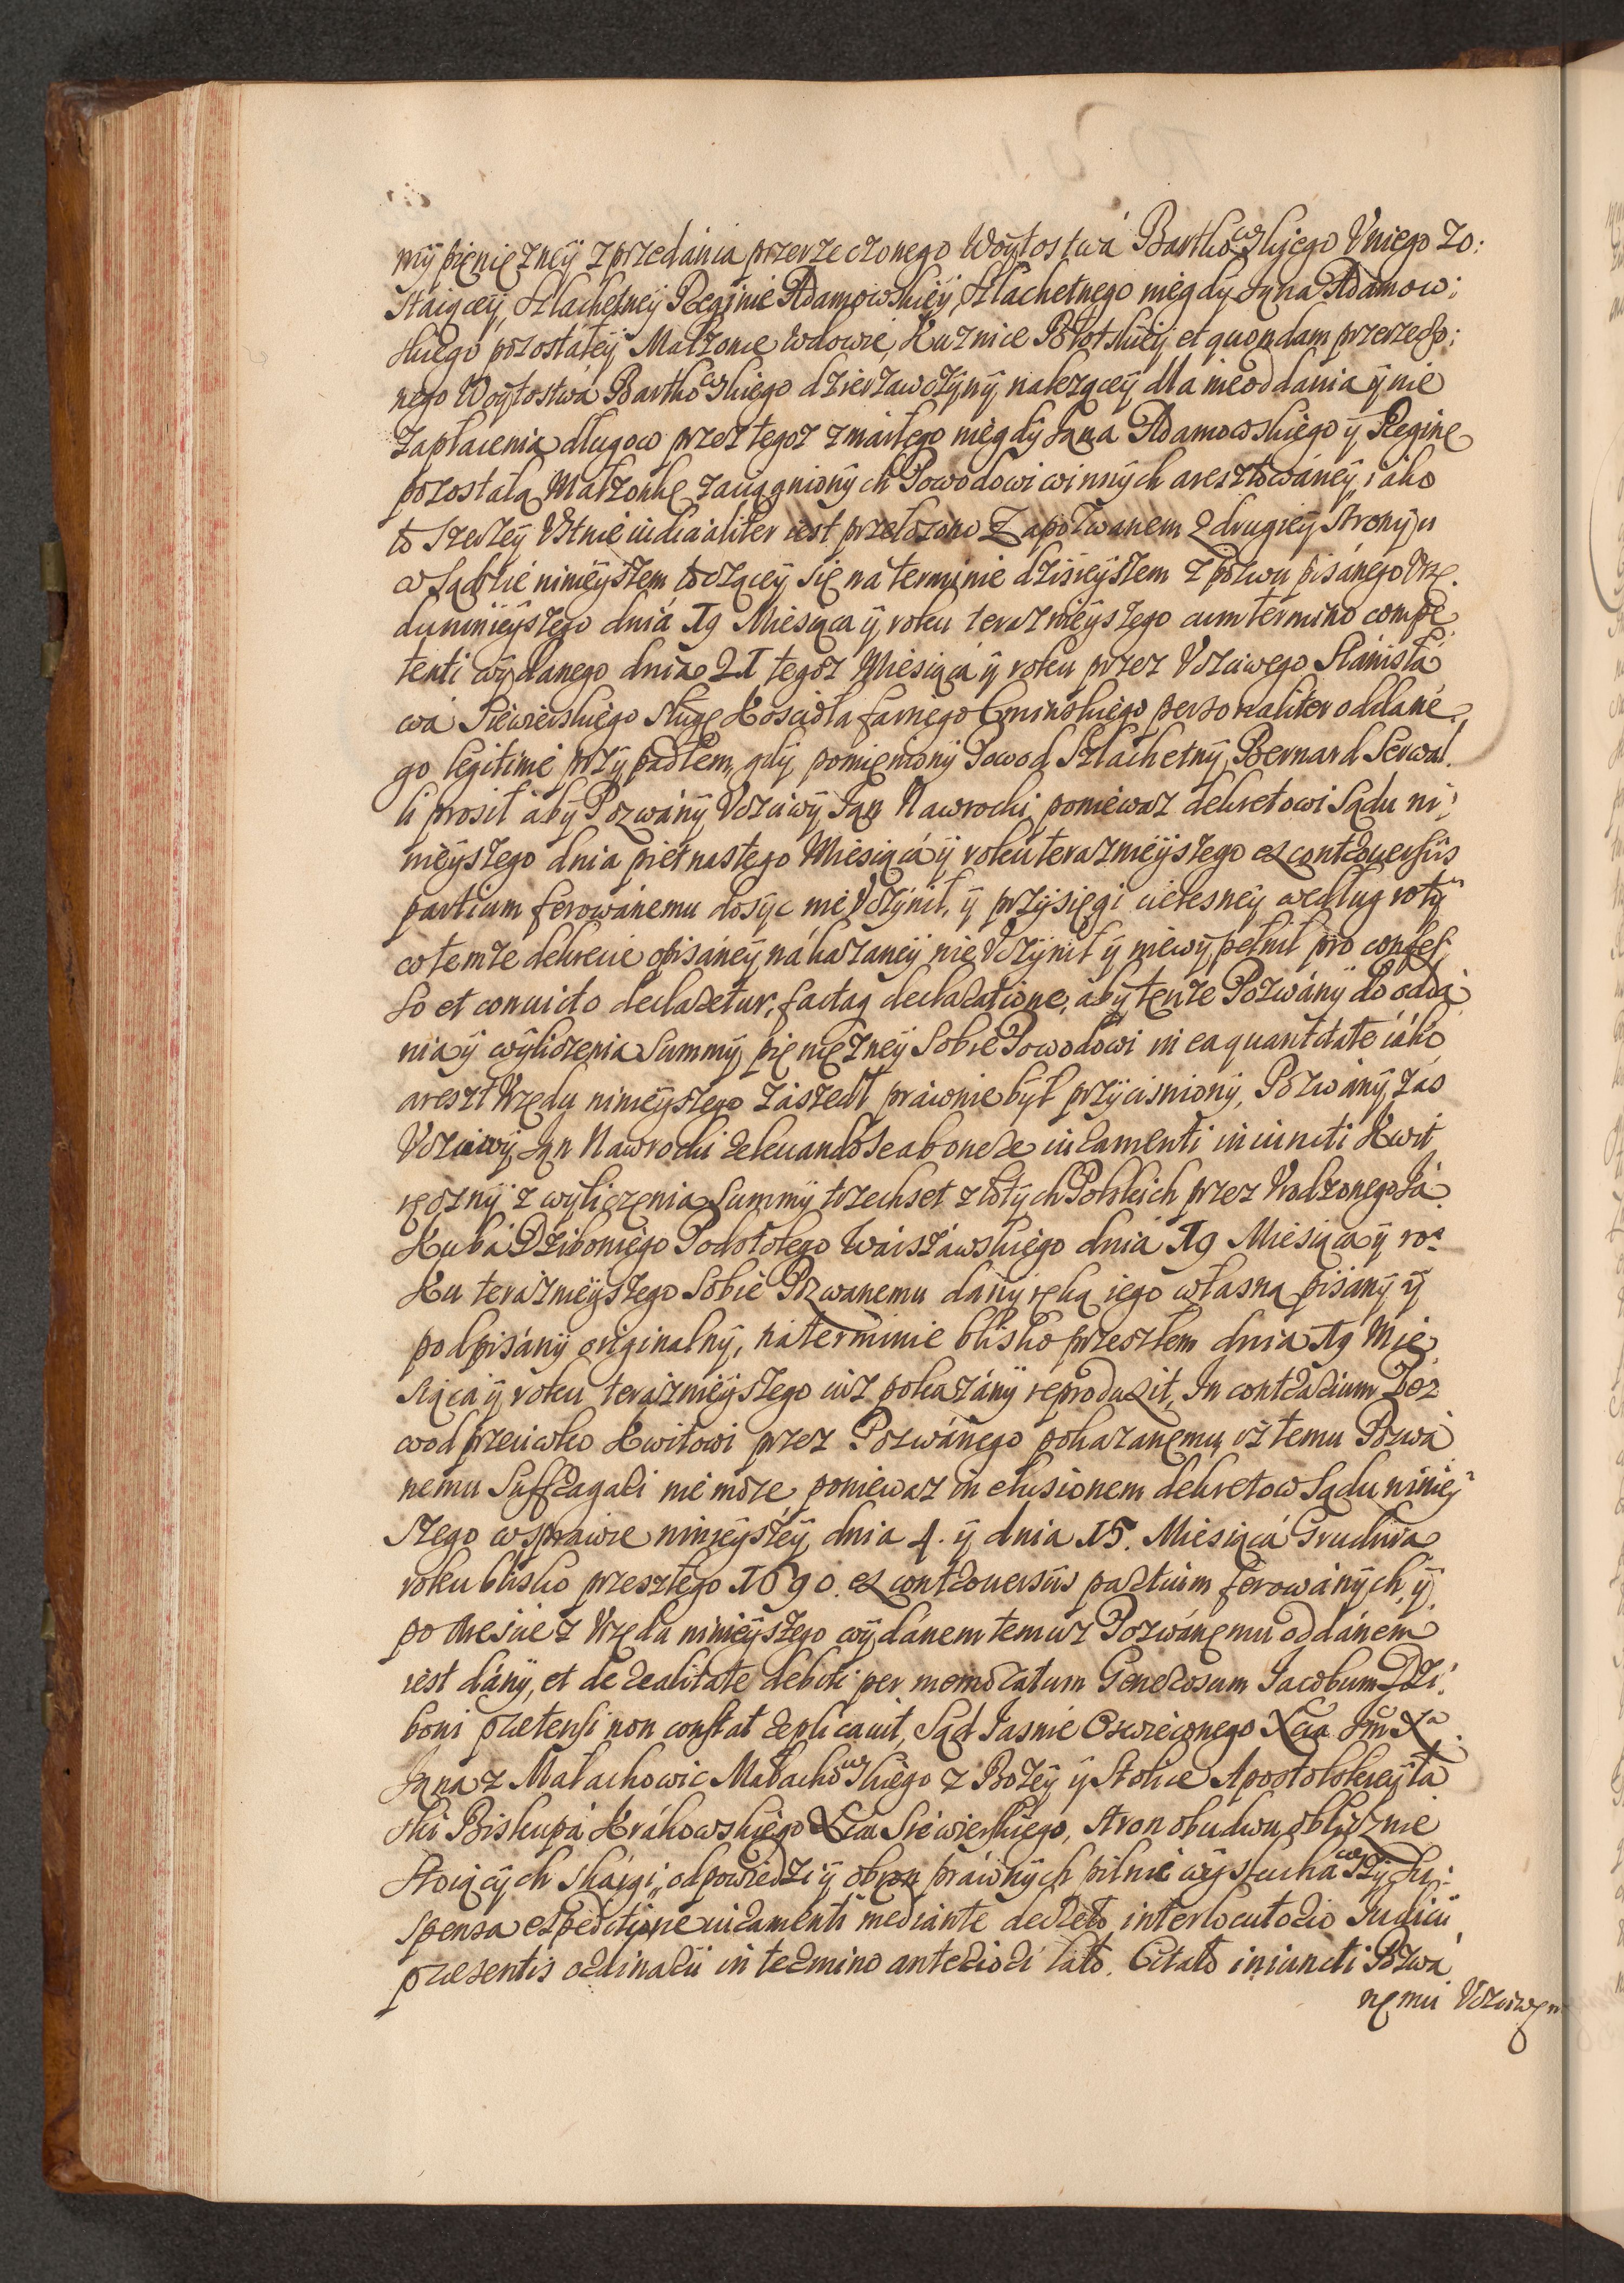 mÿ pięnięzneÿ z przedánia przerzeczonego Woÿtostwá Bartkowskiego Vniego zo:
stáiącey, Szlachetneÿ Reginie Adamowskieÿ, Szlachetnego niegdy Jana Adamow:
skiego pozostałeÿ Małzonce wdowie, Kuznice Błotskieÿ et quondam przerzeczo:
nego Woÿtostwá Bartkowskiego dzierzawczÿnÿ nalezącey dla nieoddania ÿ nie
zapłacenia długow przez tegoz zmarłego niegdÿ Jana Adamowskiego ÿ Reginę
pozostałą Małzonkę zaciągnionÿch Powodowi winnÿch aresztowáneÿ, iáko
to szerzeÿ Vstnie iudicialiter iest przełozono Zapozwanem z drugieÿ Stronÿ u
w Sądzie ninieÿszem toczącey się ná terminie dzisieÿszem z pozwu pisánego Vrzę.
du ninieÿszego dniá 19 Miesiąca ÿ roku teraznieÿszego cum termino compe
tenti wÿdanego dnia 21 tegoz Miesiącá ÿ roku przez Vczciwego Stánisłá
wá Siewierskiego sługę Koscioła farnego personaliter oddáne
go legitime przÿpadłem, gdÿ pomięnionÿ Powod Szlachetnÿ Bernard Serwal.
li prosił ábÿ Pozwánÿ Vczciwÿ Jan Nawrocki, poniewaz dekretowi Sądu ni:
nieÿszego dnia pietnastego Miesiącá ÿ roku teraznieÿszego ex controuersiis
partium ferowánemu dosÿc nie Vczÿnił, ÿ przÿsięgi cielesneÿ według rotÿ
w temze dekrecie opisáneÿ nákazaneÿ nie Vczÿnił ÿ niewÿpełnił pro confes
so et conuicto declaretur, factaq declaratione, ábÿ tenze Pozwánÿ do oddá
nia ÿ wÿliczenia Summÿ pięnięzneÿ Sobie Powodowi in ea quantitate iáko
areszt Vrzędu ninieÿszego zászedł práwnie bÿł przÿcisnionÿ, Pozwánÿ zas
Vczciwÿ Jan Nawrocki releuando se ab onere iuramenti iniuncti Kwit
ręcznÿ z wÿliczenia Summÿ trzechset złotÿch Polskich przez Vrodzonego Já
Kubá Dziboniego Podstolego Warszáwskiego dniá 19 Miesiąca ÿ ro:
Ku teraznieÿszego Sobie Pozwanemu danÿ ręką iego własną pisanÿ ÿ
podpisánÿ originalnÿ, ná terminie blisko przeszłem dnia 19 Mie
siącá ÿ roku teráznieÿszego iuz pokazánÿ reproduxit, In contrarium Po:
wod przeciwko Kwitowi przez Pozwánego pokazanęmu, iz temu Pozwá
nemu Suffragari nie moze, poniewaz in elusionem dekretow Sądu niniey:
szego w spráwie ninieÿszeÿ dnia 4. ÿ dnia 15. Miesiącá Grudnia
roku blisko przeszłego 1690. ex controuersiis partium ferowánÿch, ÿ
po Areście z Vrzędu ninieÿszego wÿdánem temuz Pozwánęmu oddánem
iest dánÿ, et de realitate debiti per memoratum Generosum Jacobum Dzi:
boni praetensi non constat replicauit, Sąd Jasnie Oswieconego Xcia Jm Xa
Jana z Małachowic Małachowskiego z Bozeÿ ÿ Stolice Apostolskieÿ łá
ski Biskupá Krákowskiego Xcia Siewierskiego, stron obudwu oblicznie
stoiącÿch skárgi, odpowiedzi ÿ obron práwnÿch pilnie wÿsłucháwszÿ, Su:
spensa expeditione iuramenti mediante decreto interlocutorio Iudicii
praesentis ordinarii in termino anteriori lato. Citato iniuncti Pozwá
nęmu Vczciwęm